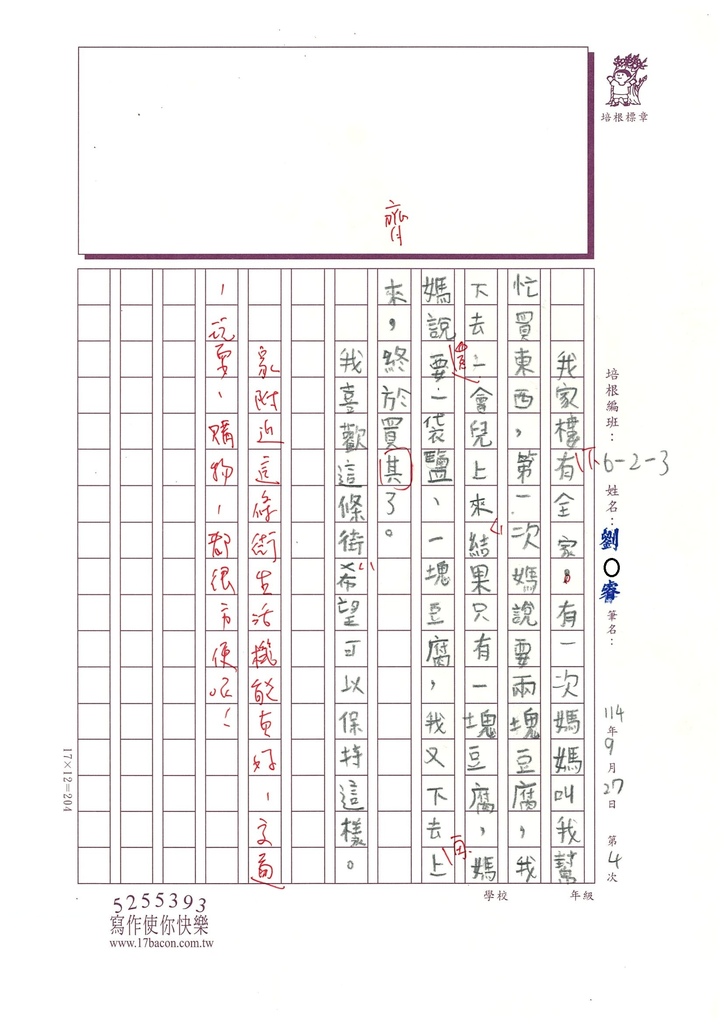 培根標章
培根編班：6-2-3
姓名：劉〇睿
筆名：
114年9月27日
第4次
學校
年級
我家樓有下全家。有一次媽媽叫我幫
忙買東西，第一次媽說要兩塊豆腐，我
下去一會兒上來，結果只有一塊豆腐，媽
媽說要買一袋鹽、一塊豆腐，我又下去再上
來，終於買其了。
齊
我喜歡這條街，希望可以保持這樣。
家附近這條街生活機能真好，交通
、玩耍、購物，都很方便呢！
17×12=204
5255393
寫作使你快樂
www.17bacon.com.tw